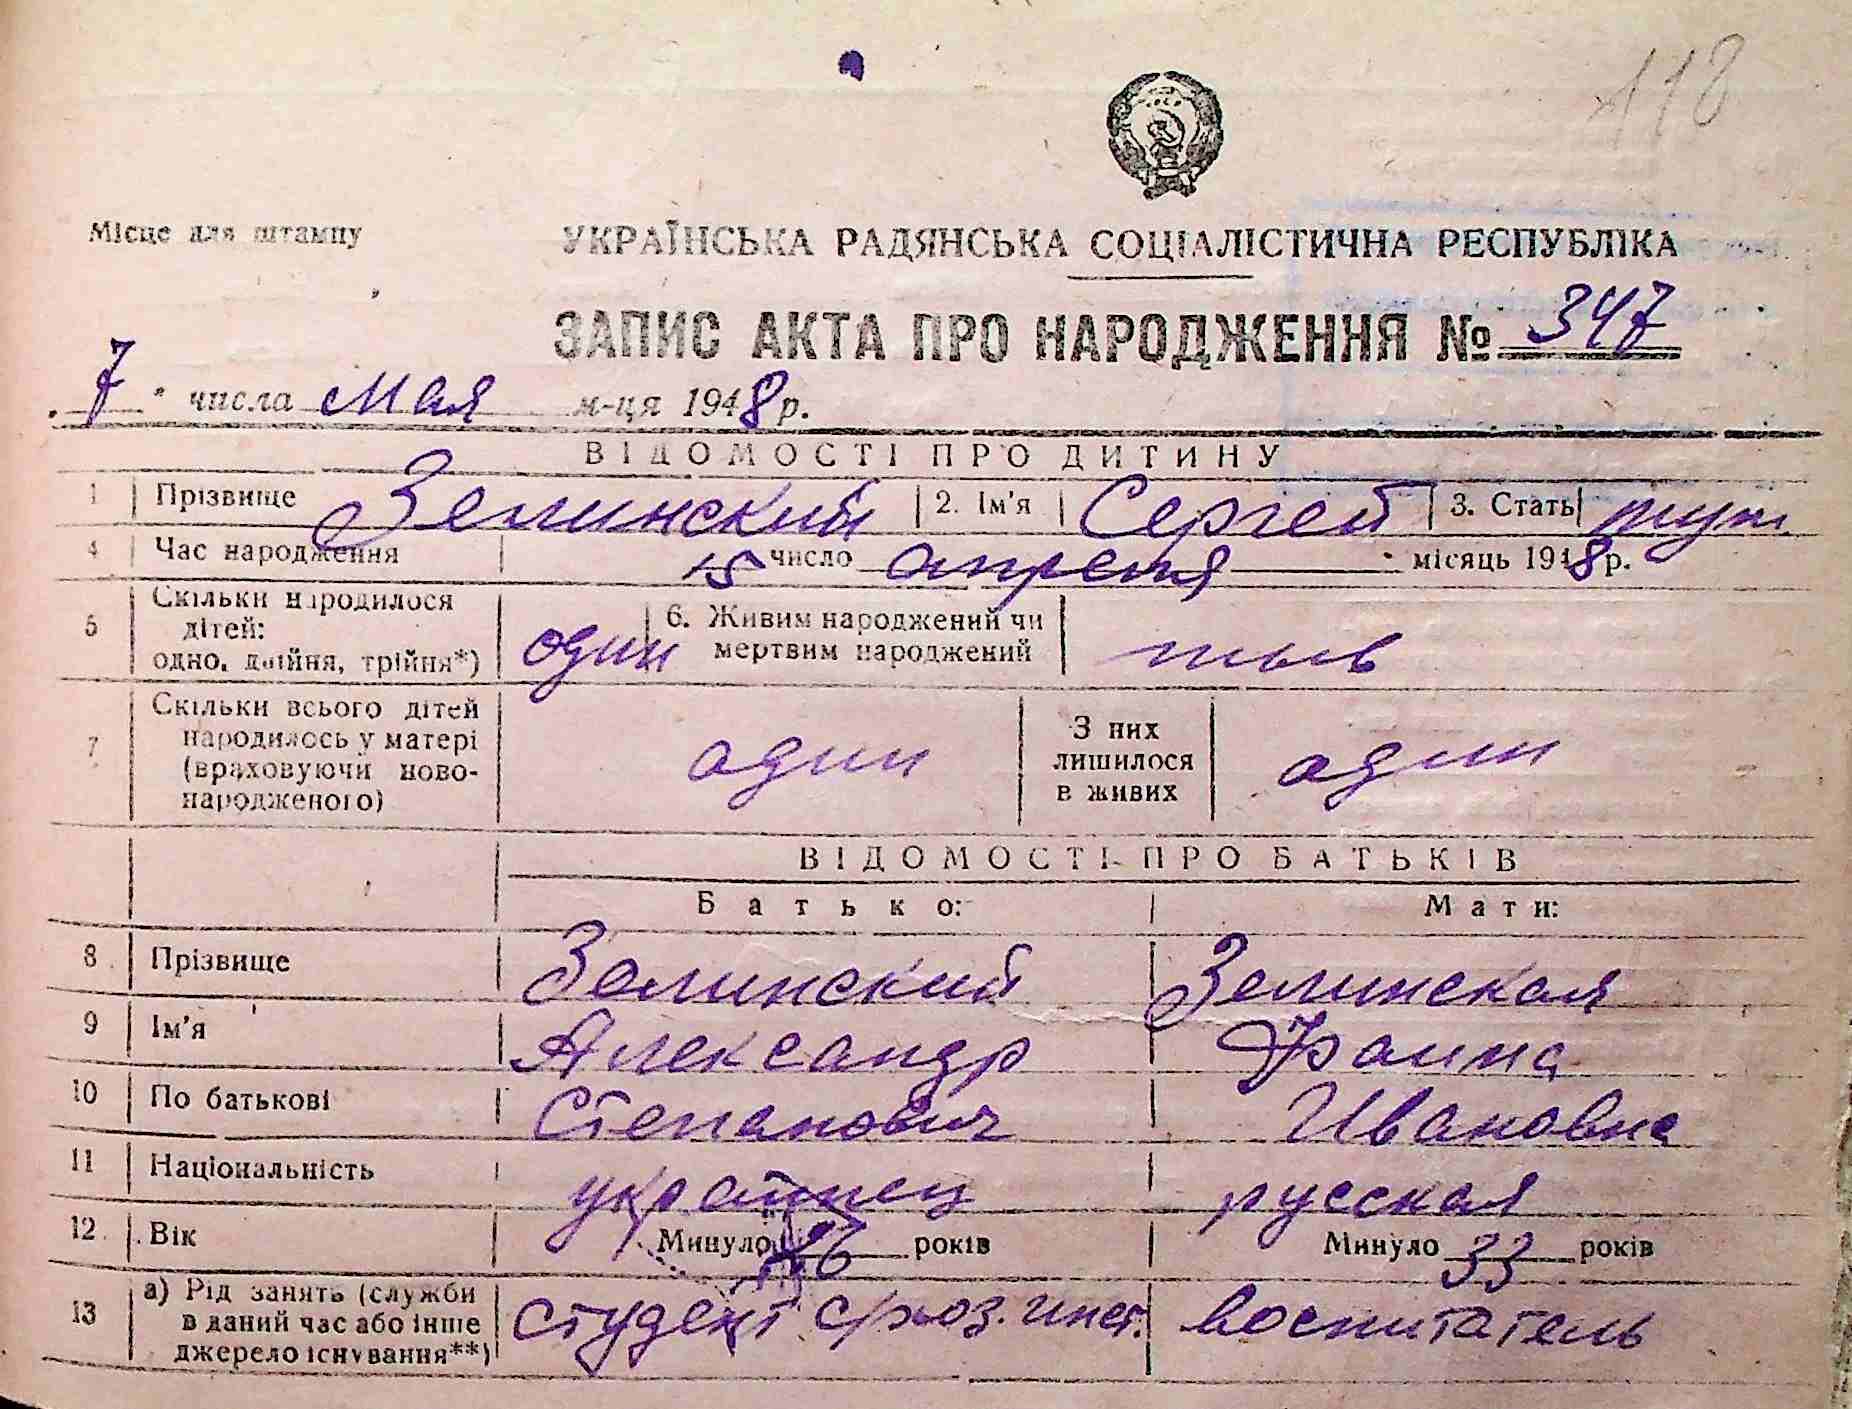 118
Місце для штампу
УКРАЇНСЬКА РАДЯНСЬКА СОЦІАЛІСТИЧНА РЕСПУБЛІКА
ЗАПИС АКТА ПРО НАРОДЖЕННЯ № 347
7 числа мая м-ця 1948 р.
ВІДОМОСТІ ПРО ДИТИНУ
1 Прізвище Зелинский 2. Ім'я Сергей 3. Стать муж.
4 Час народження 15 число апреля місяць 1948 р.
5 Скільки народилося дітей: одно, двійня, трійня*) один 6. Живим народжений чи мертвим народжений жив
7 Скільки всього дітей народилось у матері (враховуючи новонародженого) один З них лишилося в живих один
ВІДОМОСТІ ПРО БАТЬКІВ
Батько: Мати:
8 Прізвище Зелинский Зелинская
9 Ім'я Александр Фаина
10 По батькові Степанович Ивановна
11 Національність украинец русская
12 Вік Минуло 26 років Минуло 33 років
13 а) Рід занять (служби в даний час або інше джерело існування**) студент инст. воспитатель